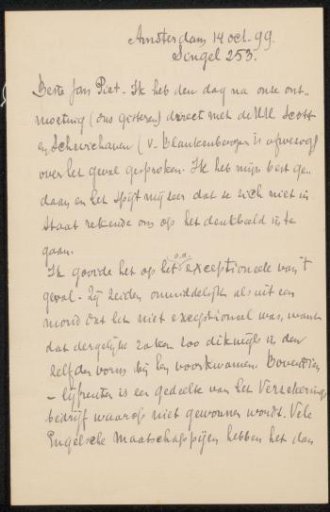 Amsterdam 14 oct. 99.
Singel 253.
Beste Jan Piet. Ik heb den dag na onze ont-
moeting (dus gisteren) direct met de HH. Scott
en Scherurhaven (v. Blankenberg is afwezig)
over het geval gesproken. Ik heb mijn best ge-
daan en het spijt mij zeer dat ze zich niet in
staat rekende om op het denkbeeld in te
gaan.
Ik gooide het op het o.a. exceptioneele van 't
geval. Zij zeiden onmiddellijk als uit een
mond dat het niet exceptioneel was, want
dat dergelijke zaken zoo dikwijls in den
zelfden vorm bij hen voorkwamen. Bovendien
- lijfrenten is een gedeelte van het Verzekerings
bedrijf waarop niet gewonnen wordt. Vele
Engelsche maatschappijen hebben het dan